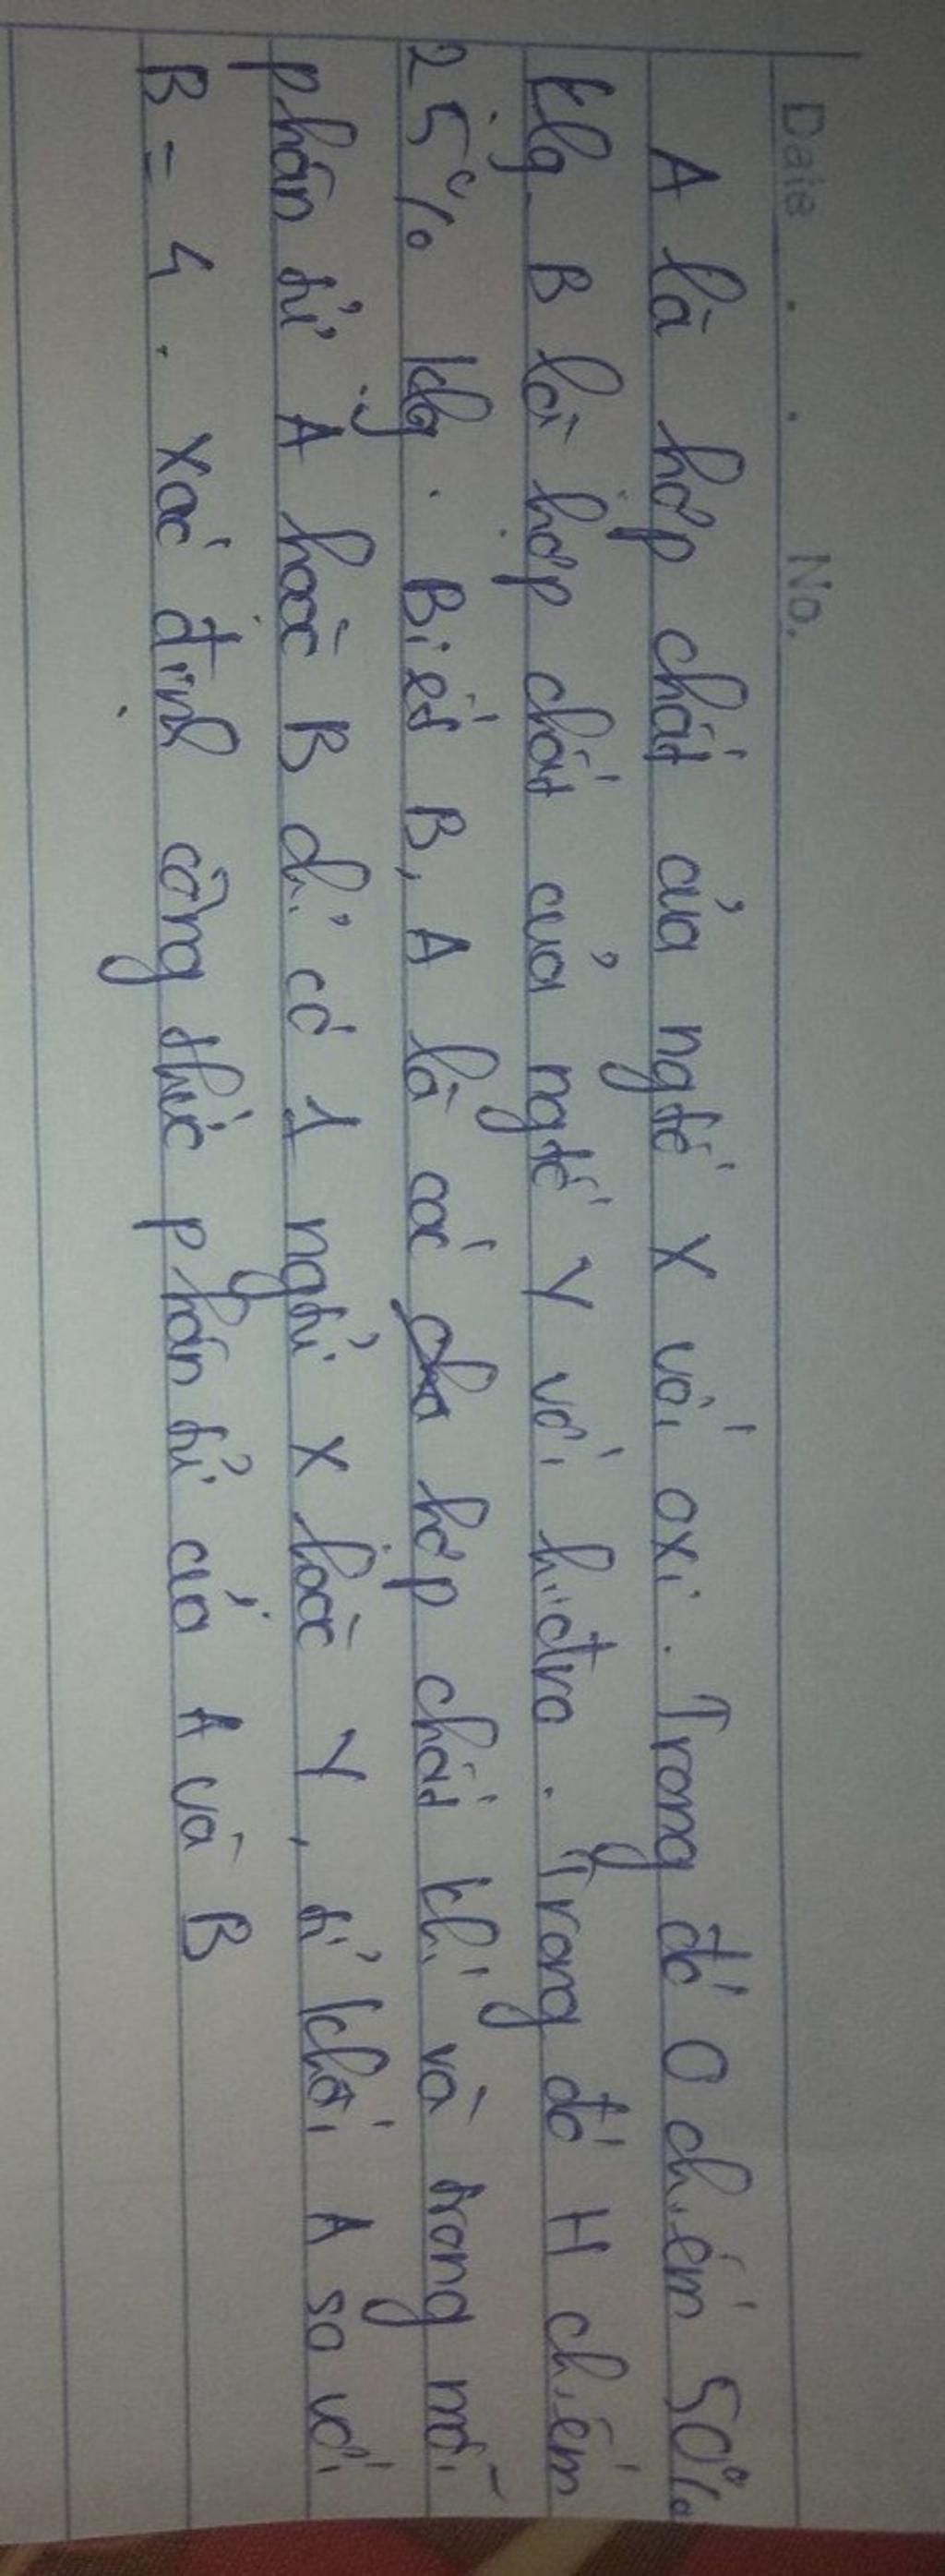 Date . . No.
A là hợp chất của ngtố X với oxi. Trong đó O chiếm 50%
klg. B là hợp chất của ngtố Y với hiđro. Trong đó H chiếm
25% klg. Biết B, A là các hợp chất khí và trong mỗi
phân tử A hoặc B chỉ có 1 ngtử X hoặc Y, tỉ khối A so với
B = 4. Xác định công thức phân tử của A và B